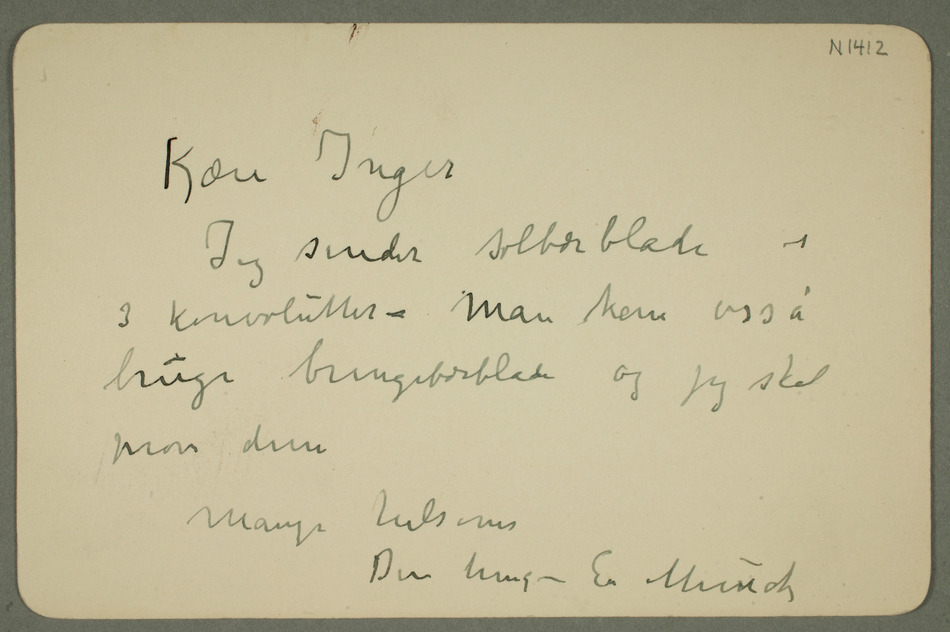 N1412
Kjære Inger
Jeg sender solbærblade i
3 konvolutter – Man kan også
bruge bringebærblade og jeg skal
prøve dem
Mange hilsener
Din heng– Ed Munch